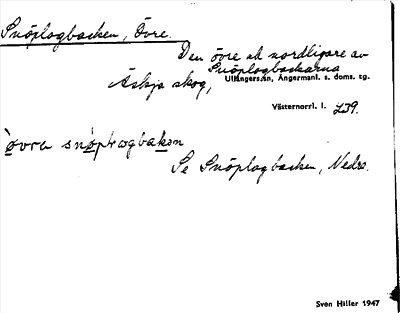 Snöplogbacken, Övre.
Den övre ek nordligare av
Snöplogbackarna
Äskja skog,
Ullångers sn, Ångermanl. s. doms. tg.
Västernorrl. l. 239.
òvra snò̀plωgbakən
Se Snöplogbacken, Nedre.
Sven Hiller 1947